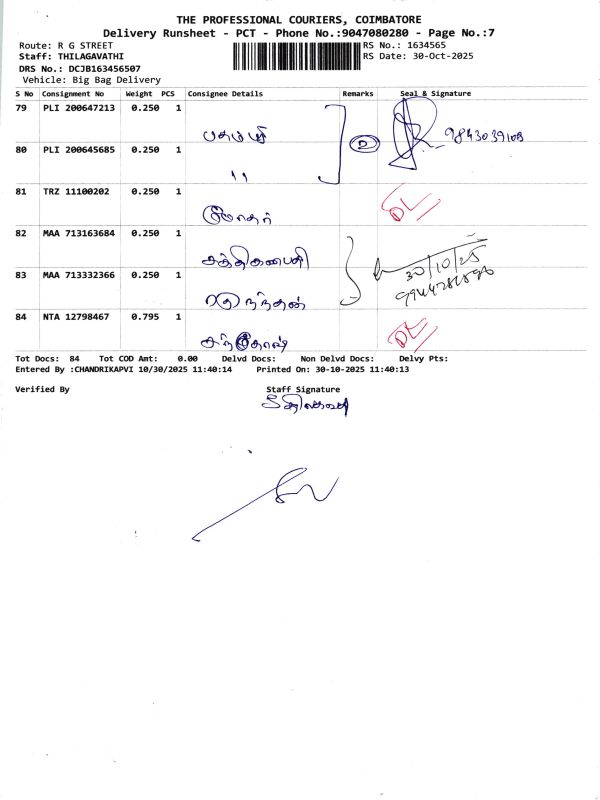 THE PROFESSIONAL COURIERS, COIMBATORE
Delivery Runsheet - PCT - Phone No.:9047080280 - Page No.:7
Route: R G STREET RS No.: 1634565
Staff: THILAGAVATHI RS Date: 30-Oct-2025
DRS No.: DCJB163456507
Vehicle: Big Bag Delivery
S No Consignment No Weight PCS Consignee Details Remarks Seal & Signature
79 PLI 200647213 0.250 1
D 9843039103
80 PLI 200645685 0.250 1
"
81 TRZ 11100202 0.250 1
DL
82 MAA 713163684 0.250 1
30/10/25
83 MAA 713332366 0.250 1
84 NTA 12798467 0.795 1
DL
Tot Docs: 84 Tot COD Amt: 0.00 Delvd Docs: Non Delvd Docs: Delvy Pts:
Entered By :CHANDRIKAPVI 10/30/2025 11:40:14 Printed On: 30-10-2025 11:40:13
Verified By Staff Signature